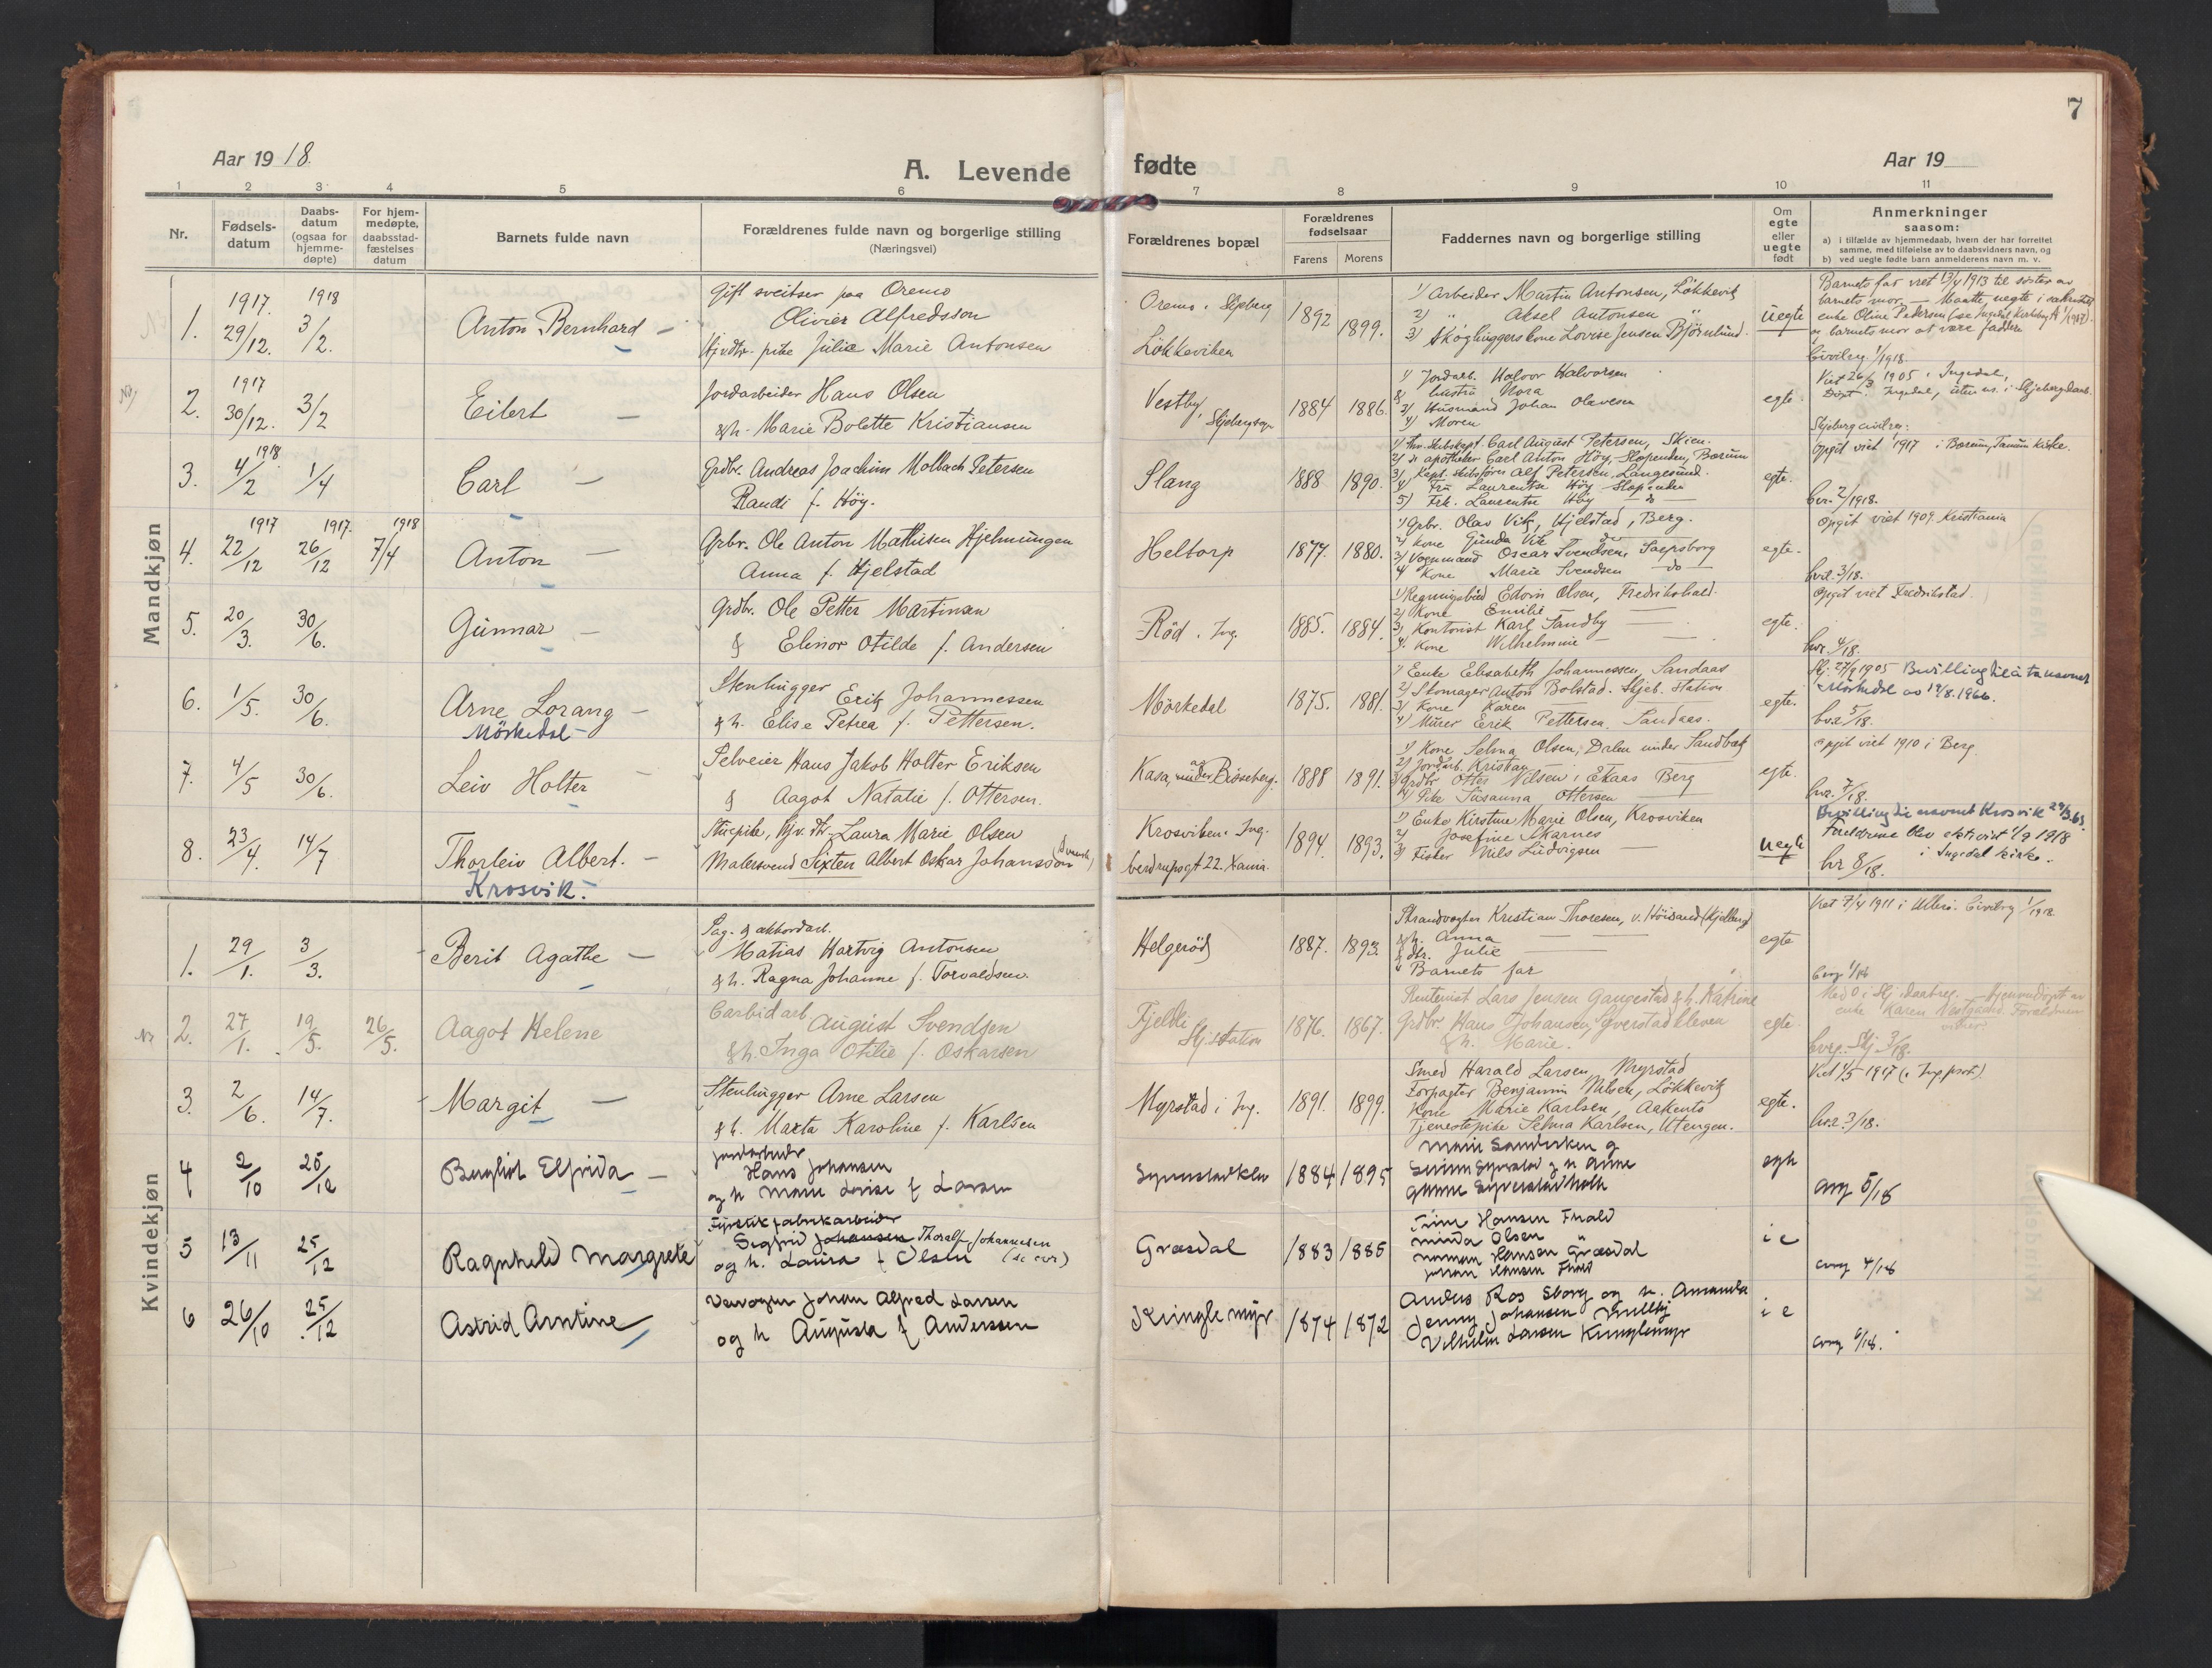 7
Aar 1918.
A. Levende fødte
Aar 19
1 2 3 4 5 6 7 8 9 10 11
Nr.
Fødsels-
datum
Daabs-
datum
(ogsaa for
hjemme-
døpte)
For hjem-
medøpte,
daabsstad-
fæstelses
datum
Barnets fulde navn
Forældrenes fulde navn og borgerlige stilling
(Næringsvei)
Forældrenes bopæl
Forældrenes
fødselsaar
Farens Morens
Faddernes navn og borgerlige stilling
Om
egte
eller
uegte
født
Anmerkninger
saasom:
a) i tilfælde av hjemmedaab, hvem der har forrettet
samme, med tilføielse av to daabsvidners navn, og
b) ved uegte fødte barn anmelderens navn m. v.
Mandkjøn
1. 1917 29/12. 1918 3/2.
Anton Bernhard
Gift sveitser paa Oremo
Olivier Alfredsson
pike Julie Marie Antonsen
Oremo i Skjeberg
Løkkeviken
1892 1899.
1) Arbeider Martin Antonsen, Løkkevik
2) " Aksel Antonsen "
3) Skoghuggers kone Lovise Jensen Bjørnlund.
uegte
Barnets far viet 13/4 1913 til søster av
barnets mor. — Maatte negte i sakristiet
enke Oline Pedersen
og barnets mor at være faddere
2. 1917 30/12. 3/2
Eilert
Jordarbeider Hans Olsen
& h. Marie Bolette Kristiansen
Vestby, Skjebergsogn
1884 1886.
1) Jordarb. Halvor Halvorsen
& hustru Nora
3) Husmand Johan Olavesen
4) Moren
egte.
1/1918.
Viet 26/3 1905 i Ingedal,
3. 4/2 1918 1/4
Carl
Grdbr. Andreas Joachim Molbach Petersen
Randi f. Høy.
Slang
1888 1890.
1) Skibskapt. Carl August Petersen, Skien.
2) apotheker Carl Anton Høy, Slependen, Bærum
3) Kapt. skibsfører Alf Petersen, Langesund.
4) Fru Laurentse Høy Slependen
5) Frk. Laurentse Høy — do —
egte.
Opgit viet 1917 i Bærum, Tanum kirke.
2/1918.
4. 1917 22/12 1917. 26/12 1918 7/4
Anton
Grbr. Ole Anton Mathisen Hjelmungen
Anna f. Hjelstad
Heltorp
1877. 1880.
1) Grbr. Olav Vik, Hjelstad, Berg.
2) Kone Gunda Vik do
3) Vognmand Oscar Svendsen, Sarpsborg
4) Kone Marie Svendsen — do —
egte.
Opgit viet 1909. Kristiania
3/18.
5. 20/3. 30/6.
Gunnar
Grdbr. Ole Petter Martinsen
& Elinor Otilde f. Andersen
Rød. Ing.
1885. 1884.
1) Regningsbud Edvin Olsen, Fredrikshald.
2) Kone Emilie
3) Kontorist Karl Sandby
4. Kone Wilhelmine
egte.
Opgit viet Fredrikstad.
4/18.
6. 1/5. 30/6.
Arne Lorang
Mörkedal
Stenhugger Erik Johannessen
& h. Elise Petrea f. Pettersen.
Mörkedal
1875. 1881.
1) Enke Elisabeth Johannessen, Sandaas
2) Skomager Anton Bolstad. Skjeb. station
3) Kone Karen
4) Murer Erik Pettersen, Sandaas.
egte.
Skj. 27/9 1905 Bevilling til å ta navnet
Mörkedal av 19/8.1966.
5/18.
7. 4/5 30/6.
Leiv Holter
Selveier Hans Jakob Holter Eriksen
& Aagot Natalie f. Ottersen.
Kasa, under Brøseberg.
1888 1891.
1) Kone Selma Olsen, Dalen under Sandbæk
2) Jordarb. Kristian
3) Grdbr. Otter Nilsen i Ekaas Berg
4) Pike Susanna Ottersen
egte.
opgit viet 1910 i Berg.
7/18.
8. 23/4. 14/7
Thorleiv Albert.
Krosvik.
Stuepike, Laura Marie Olsen
Malersvend Sixten Albert Oskar Johansson (Svensk)
Krosviken. Ing.
22. Xania.
1894. 1893.
1) Enke Kirstine Marie Olsen, Krosviken
2) Josefine Skarnes
3) Fisker Nils Ludvigsen
uegte
Bevilling til navnet Krosvik 29/3.65.
Foreldrene blev viet 1/9 1918
i Ingedal kirke.
8/18.
Kvindekjøn
1. 29/1. 3/3.
Berit Agathe
Sag- & akkordarb.
Matias Hartvig Antonsen
& h. Ragna Johanne f. Torvaldsen.
Helgerød
1887. 1893.
Strandvogter Kristian Thoresen, v. Høisand (Skjeberg)
& h. Anna
& dtr. Julie
Barnets far
egte
Viet 7/4 1911 i Ullerø. 1/1918.
2. 27/1. 19/5. 26/5.
Aagot Helene
Carbidarb. August Svendsen
& h. Inga Otilie f. Oskarsen
Fjeldli Skj. station
1876. 1867.
Rentenist Lars Jensen Gangestad & h. Katrine
Grdbr. Hans Johansen, Syverstadkleven
& h. Marie.
egte
enke Karen
3/18.
3. 2/6. 14/7.
Margit
Stenhugger Arne Larsen
& h. Marta Karoline f. Karlsen
Myrstad i Ing.
1891. 1899.
Smed Harald Larsen, Myrstad
Forpagter Benjamin Nilsen, Løkkevik
Kone Marie Karlsen,
Tjenestepike Selma Karlsen, Utengen.
egte.
Viet 1/5 1917
3/18.
4 2/10 25/12
Bergliot Elfrida
Jordarbeider
Hans Johansen
og h Marie Lovise f Larsen
Syverstadklev
1884 1895
egte
5/18
5 13/11 25/12
Ragnhild Margrete
Fyrstikfabrikarbeider
Sigfrid Johansen Thoralf Johannesen
og h. Laura f Olsen
Græsdal
1883 1885
Hansen
Minda Olsen "
Hansen Græsdal
Johan Hansen
4/18
6 26/10 25/12
Astrid Arntine
Johan Alfred Larsen
og h Augusta f Anderssen
Kringlemyr
1874 1872
Anders og h. Amanda
Jenny Johansen
Vilhelm Larsen Kringlemyr
6/18.